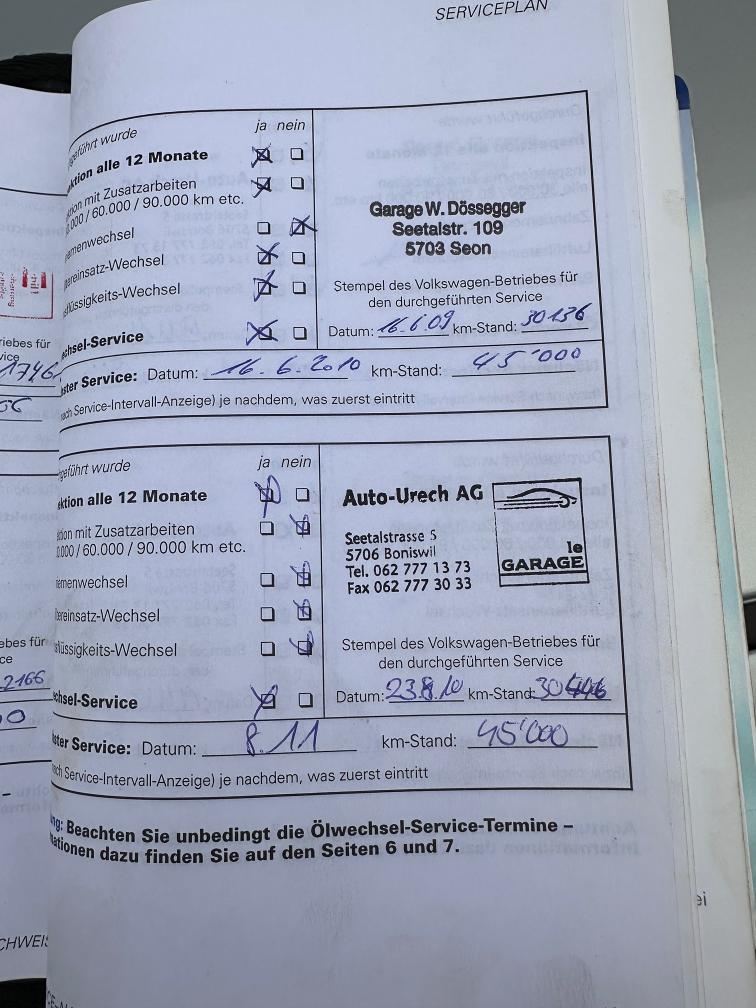 SERVICEPLAN
geführt wurde ja nein
ktion alle 12 Monate
tion mit Zusatzarbeiten
.000 / 60.000 / 90.000 km etc.
emenwechsel
tereinsatz-Wechsel
sflüssigkeits-Wechsel
chsel-Service
Garage W. Dössegger
Seetalstr. 109
5703 Seon
Stempel des Volkswagen-Betriebes für
den durchgeführten Service
Datum: 16.6.09 km-Stand: 30136
ster Service: Datum: 16. 6. 2010 km-Stand: 45'000
ach Service-Intervall-Anzeige) je nachdem, was zuerst eintritt
geführt wurde ja nein
ektion alle 12 Monate
tion mit Zusatzarbeiten
.000 / 60.000 / 90.000 km etc.
emenwechsel
tereinsatz-Wechsel
sflüssigkeits-Wechsel
chsel-Service
Auto-Urech AG
Seetalstrasse 5
5706 Boniswil
Tel. 062 777 13 73
Fax 062 777 30 33
le
GARAGE
Stempel des Volkswagen-Betriebes für
den durchgeführten Service
Datum: 23.8.10 km-Stand:
ster Service: Datum: 8.11 km-Stand: 45'000
ach Service-Intervall-Anzeige) je nachdem, was zuerst eintritt
ng: Beachten Sie unbedingt die Ölwechsel-Service-Termine –
ationen dazu finden Sie auf den Seiten 6 und 7.
riebes für
vice
1746
ebes für
ce
2166
CHWEIS